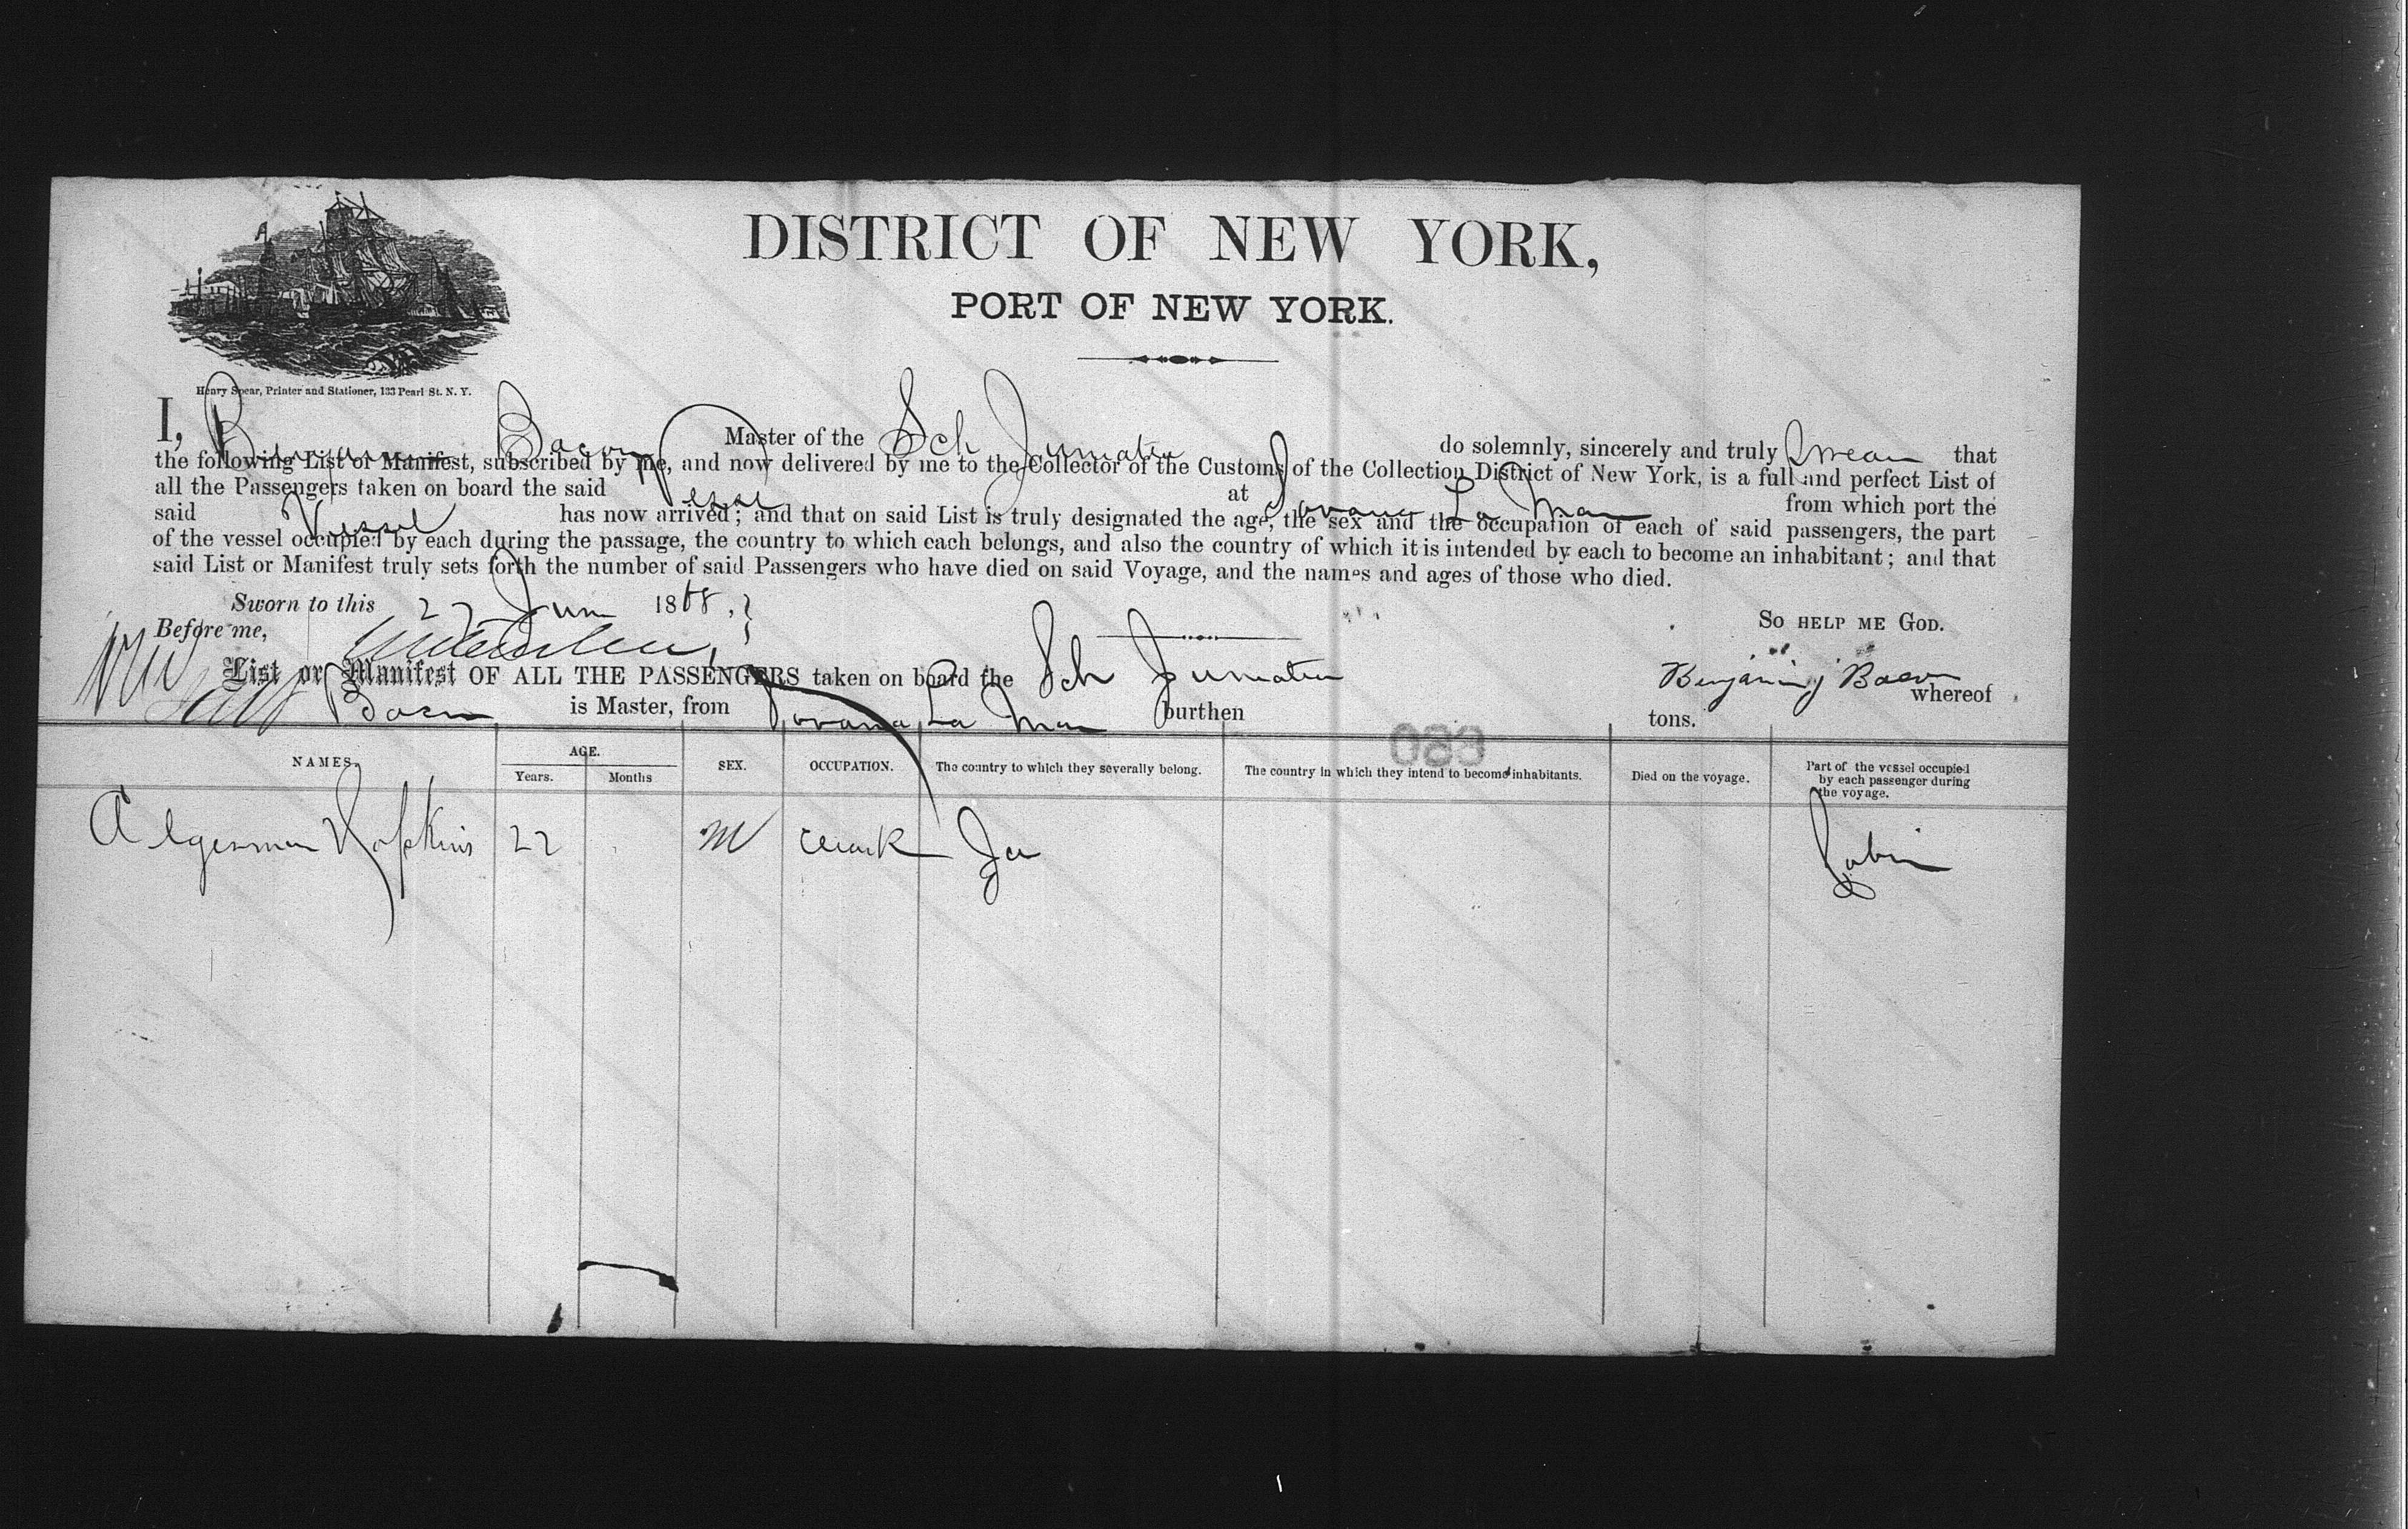 DISTRICT OF NEW YORK,
PORT OF NEW YORK.
Henry Spear, Printer and Stationer, 133 Pearl St. N. Y.
I, Benjamin Bacon Master of the Sch do solemnly, sincerely and truly Swear that
the following List or Manifest, subscribed by me, and now delivered by me to the Collector of the Customs of the Collection District of New York, is a full and perfect List of
all the Passengers taken on board the said Vessel at Savana La Mar from which port the
said Vessel has now arrived; and that on said List is truly designated the age, the sex and the occupation of each of said passengers, the part
of the vessel occupied by each during the passage, the country to which each belongs, and also the country of which it is intended by each to become an inhabitant; and that
said List or Manifest truly sets forth the number of said Passengers who have died on said Voyage, and the names and ages of those who died.
Sworn to this 27 June 1868. }
So help me God.
Before me,
Benjamin Bacon
List or Manifest OF ALL THE PASSENGERS taken on board the Sch whereof
Bacon is Master, from Savana La Mar burthen tons.
NAMES. AGE. SEX. OCCUPATION. The country to which they severally belong. The country in which they intend to become inhabitants. Died on the voyage. Part of the vessel occupied by each passenger during the voyage.
Years. Months
Hopkins 22 M Clark Ja Cabin